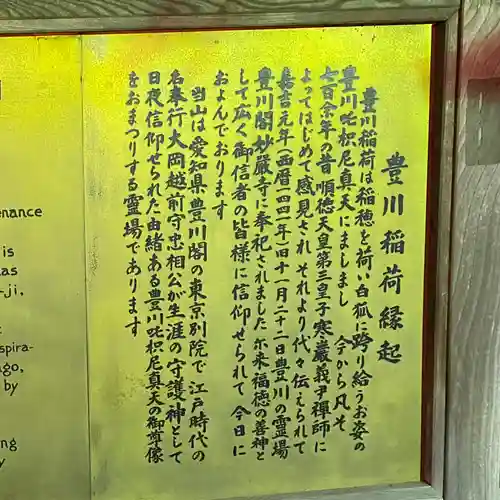 豊川稲荷縁起
豊川稲荷は稲穂と荷い白狐に跨り給うお姿の
豊川吒枳尼真天にましまし 今から凡そ
七百余年の昔 順徳天皇第三皇子 寒巌義尹禅師に
よってはじめて感見され それより代々伝えられて
嘉吉元年(西暦一四四一年)旧十一月二十二日豊川の霊場
豊川閣妙厳寺に奉祀されました 尓来福徳の善神と
して広く御信者の皆様に信仰せられて 今日に
およんでおります
当山は愛知県豊川閣の東京別院で 江戸時代の
名奉行大岡越前守忠相公が生涯の守護神として
日夜信仰せられた由緒ある豊川吒枳尼真天の御尊像
をおまつりする霊場であります
enance
is
as
-ji,
spira-
go,
by
ng
y